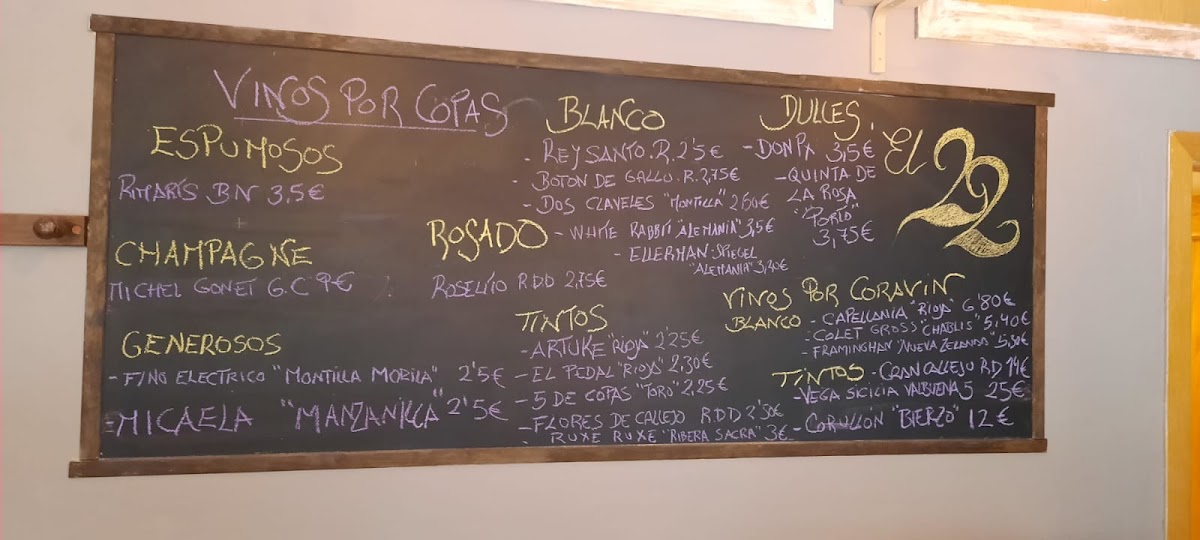 VINOS POR COPAS
ESPUMOSOS
RMARÍS BN 3,5€
CHAMPAGNE
MICHEL GONET G.C 9€
GENEROSOS
- FINO ELECTRICO "MONTILLA MORILA" 2'5€
- MICAELA "MANZANILLA" 2'5€
ROSADO
ROSELITO RDD 2,75€
BLANCO
- REY SANTO.R. 2'5€
- BOTON DE GALLO.R. 2,75€
- DOS CLAVELES "MONTILLA" 2,50€
- WHITE RABBIT "ALEMANIA" 3,5€
- ELLERMAN-SPIEGEL
"ALEMANIA" 3,20€
TINTOS
- ARTUKE "RIOJA" 2'25€
- EL PEDAL "RIOJA" 2,30€
- 5 DE COPAS "TORO" 2,25€
- FLORES DE CALLEJO R.D.D 2'50€
- RUXE RUXE "RIBERA SACRA" 3€
DULCES.
- DON PX 3,5€
- QUINTA DE
LA ROSA
"PORTO"
3,75€
EL 22
VINOS POR CORAVIN
BLANCO - CAPELLANIA "RIOJA" 6'80€
- COLET GROSS "CHABLIS" 5,40€
- FRAMINGHAN "NUEVA ZELANDA" 5,30€
TINTOS - GRAN CALLEJO RD 14€
- VEGA SICILIA VALBUENA 5 25€
- CORULLON "BIERZO" 12€